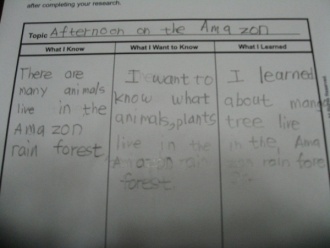 after completing your research.
Topic Afternoon on the Amazon
What I Know
What I Want to Know
What I Learned
There are
many animals
live in the
Amazon
rain forest.
I want to
know what
animals, plants
live in the
Amazon rain
forest
I learned
about mango
tree live
in the, Ama
zon rain fore